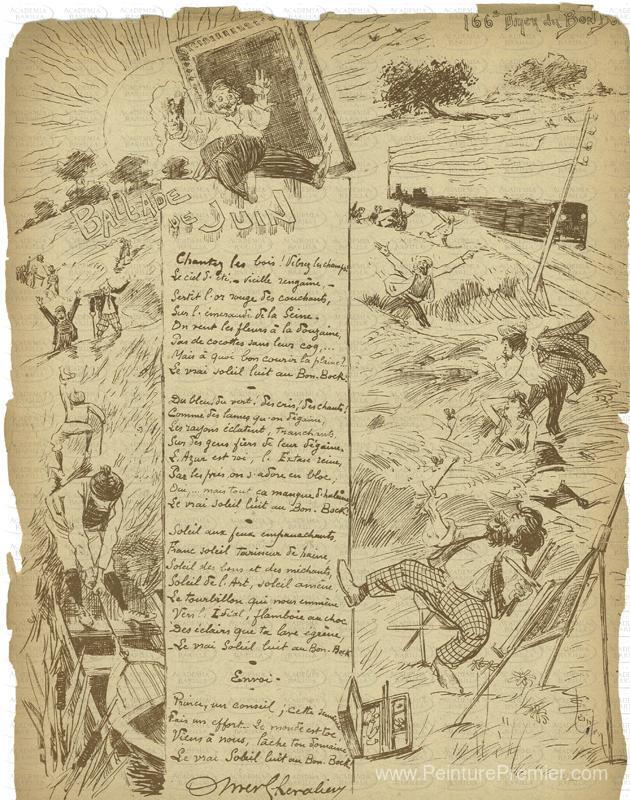 166e Diner du Bon Bo
BALLADE
DE JUIN
Chantez les bois! Vibrez les champs!
Le ciel d'été, - vieille rengaine, -
Sertit l'or rouge des couchants,
Sur l'émeraude de la Seine.
On vent les fleurs à la douzaine,
Pas de cocottes sans leur coq...
Mais à quoi bon courir la plaine?
Le vrai soleil luit au Bon-Bock.
Du bleu, du vert! des cris! des chants!
Comme des lames qu'on dégaine,
Les rayons éclatent, tranchants,
Sur des gens fiers de leur dégaine.
L'Azur est roi, l'Extase reine,
Par les prés on s'adore en bloc,
Oui,... mais tout ça manque d'haleine
Le vrai soleil luit au Bon-Bock.
Soleil aux feux empanachants,
Franc soleil tarisseur de haine,
Soleil des bons et des méchants,
Soleil de l'Art, soleil amène
Le tourbillon qui nous emmène
Vers l'Idéal, flamboie au choc
Des éclairs que ta lave égrène,
Le vrai Soleil luit au Bon-Bock
Envoi -
Prince, un conseil; cette
Fais un effort. Le monde est toc
Viens à nous, lâche ton domaine
Le vrai Soleil luit au Bon-Bock
Omer Chevalier
www.PeinturePremier.com
ACADEMIA BARILLA